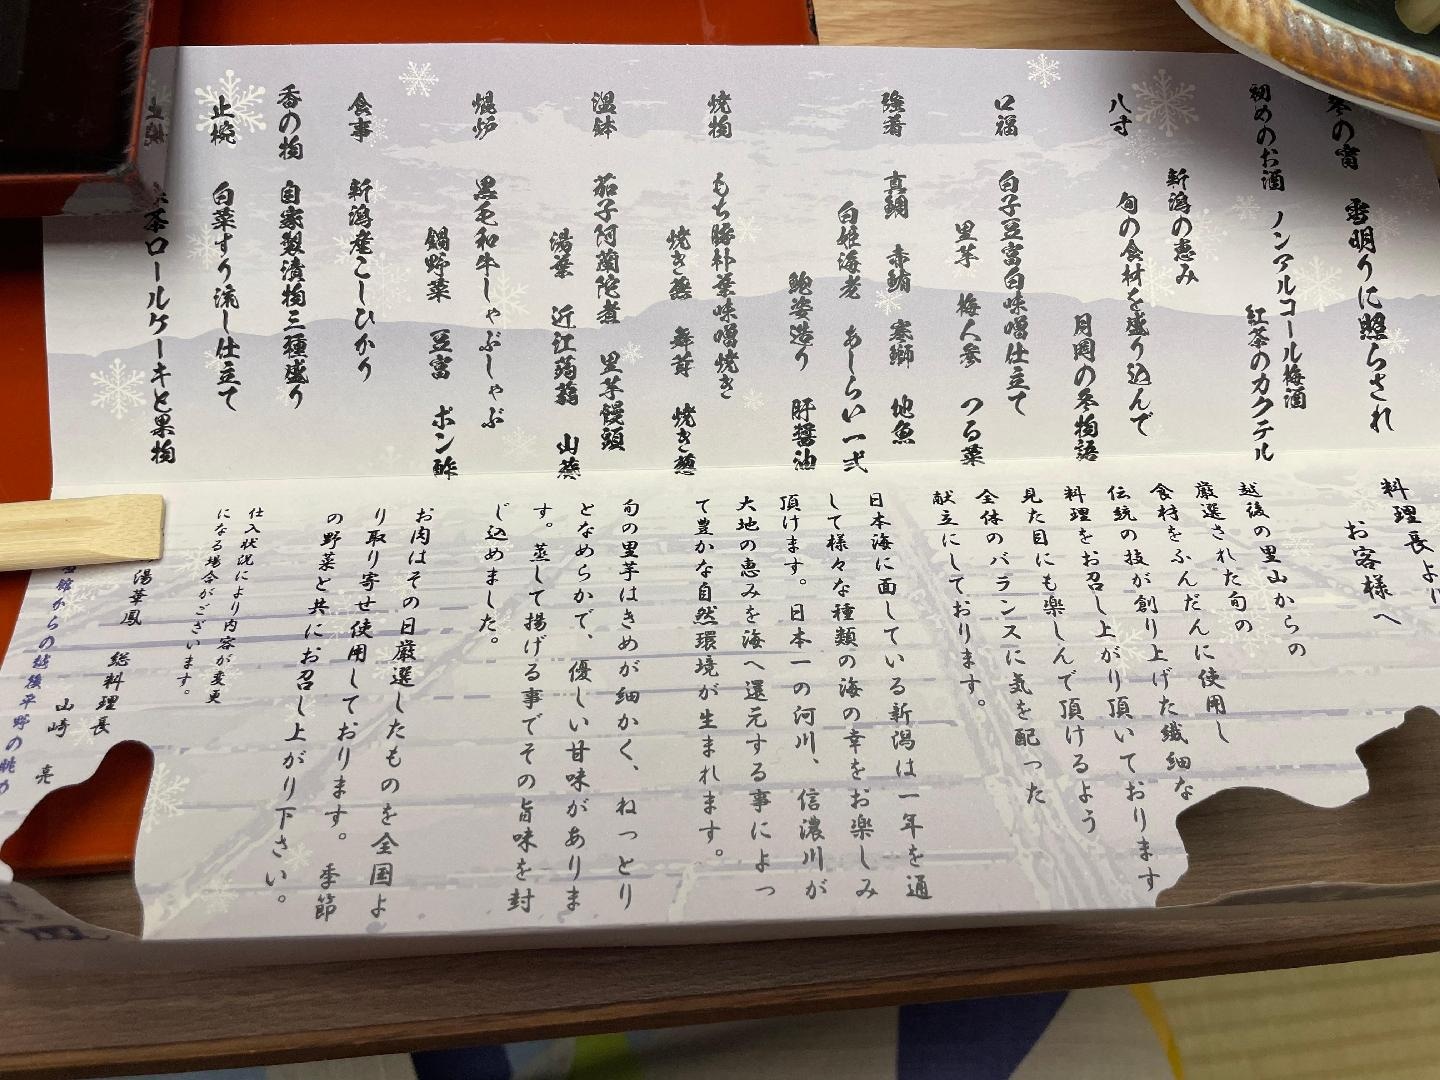 寒の宵　雪明りに照らされ
初めのお酒　ノンアルコール梅酒
紅茶のカクテル
八寸　新潟の恵み
旬の食材を盛り込んで
月岡の冬物語
口福　白子豆富白味噌仕立て
里芋　梅人参　つる菜
強肴　真鯛　赤鯥　寒鰤　地魚
白姫海老　あしらい一式
鮑姿造り　肝醤油
焼物　もち豚朴葉味噌焼き
焼き蕪　舞茸　焼き葱
温鉢　茄子阿蘭陀煮　里芋饅頭
湯葉　近江蒟蒻　山葵
焜炉　黒毛和牛しゃぶしゃぶ
鍋野菜　豆富　ポン酢
食事　新潟産こしひかり
香の物　自家製漬物三種盛り
止椀　白菜すり流し仕立て
茶ロールケーキと果物
料理長より
お客様へ
越後の里山からの
厳選された旬の
食材をふんだんに使用し
伝統の技が創り上げた繊細な
料理をお召し上がり頂いております
見た目にも楽しんで頂けるよう
全体のバランスに気を配った
献立にしております。
日本海に面している新潟は一年を通
して様々な種類の海の幸をお楽しみ
頂けます。日本一の河川、信濃川が
大地の恵みを海へ還元する事によっ
て豊かな自然環境が生まれます。
旬の里芋はきめが細かく、ねっとり
となめらかで、優しい甘味がありま
す。蒸して揚げる事でその旨味を封
じ込めました。
お肉はその日厳選したものを全国よ
り取り寄せ使用しております。季節
の野菜と共にお召し上がり下さい。
仕入状況により内容が変更
になる場合がございます。
湯華鳳　総料理長
山崎　亮
からの越後平野の眺め